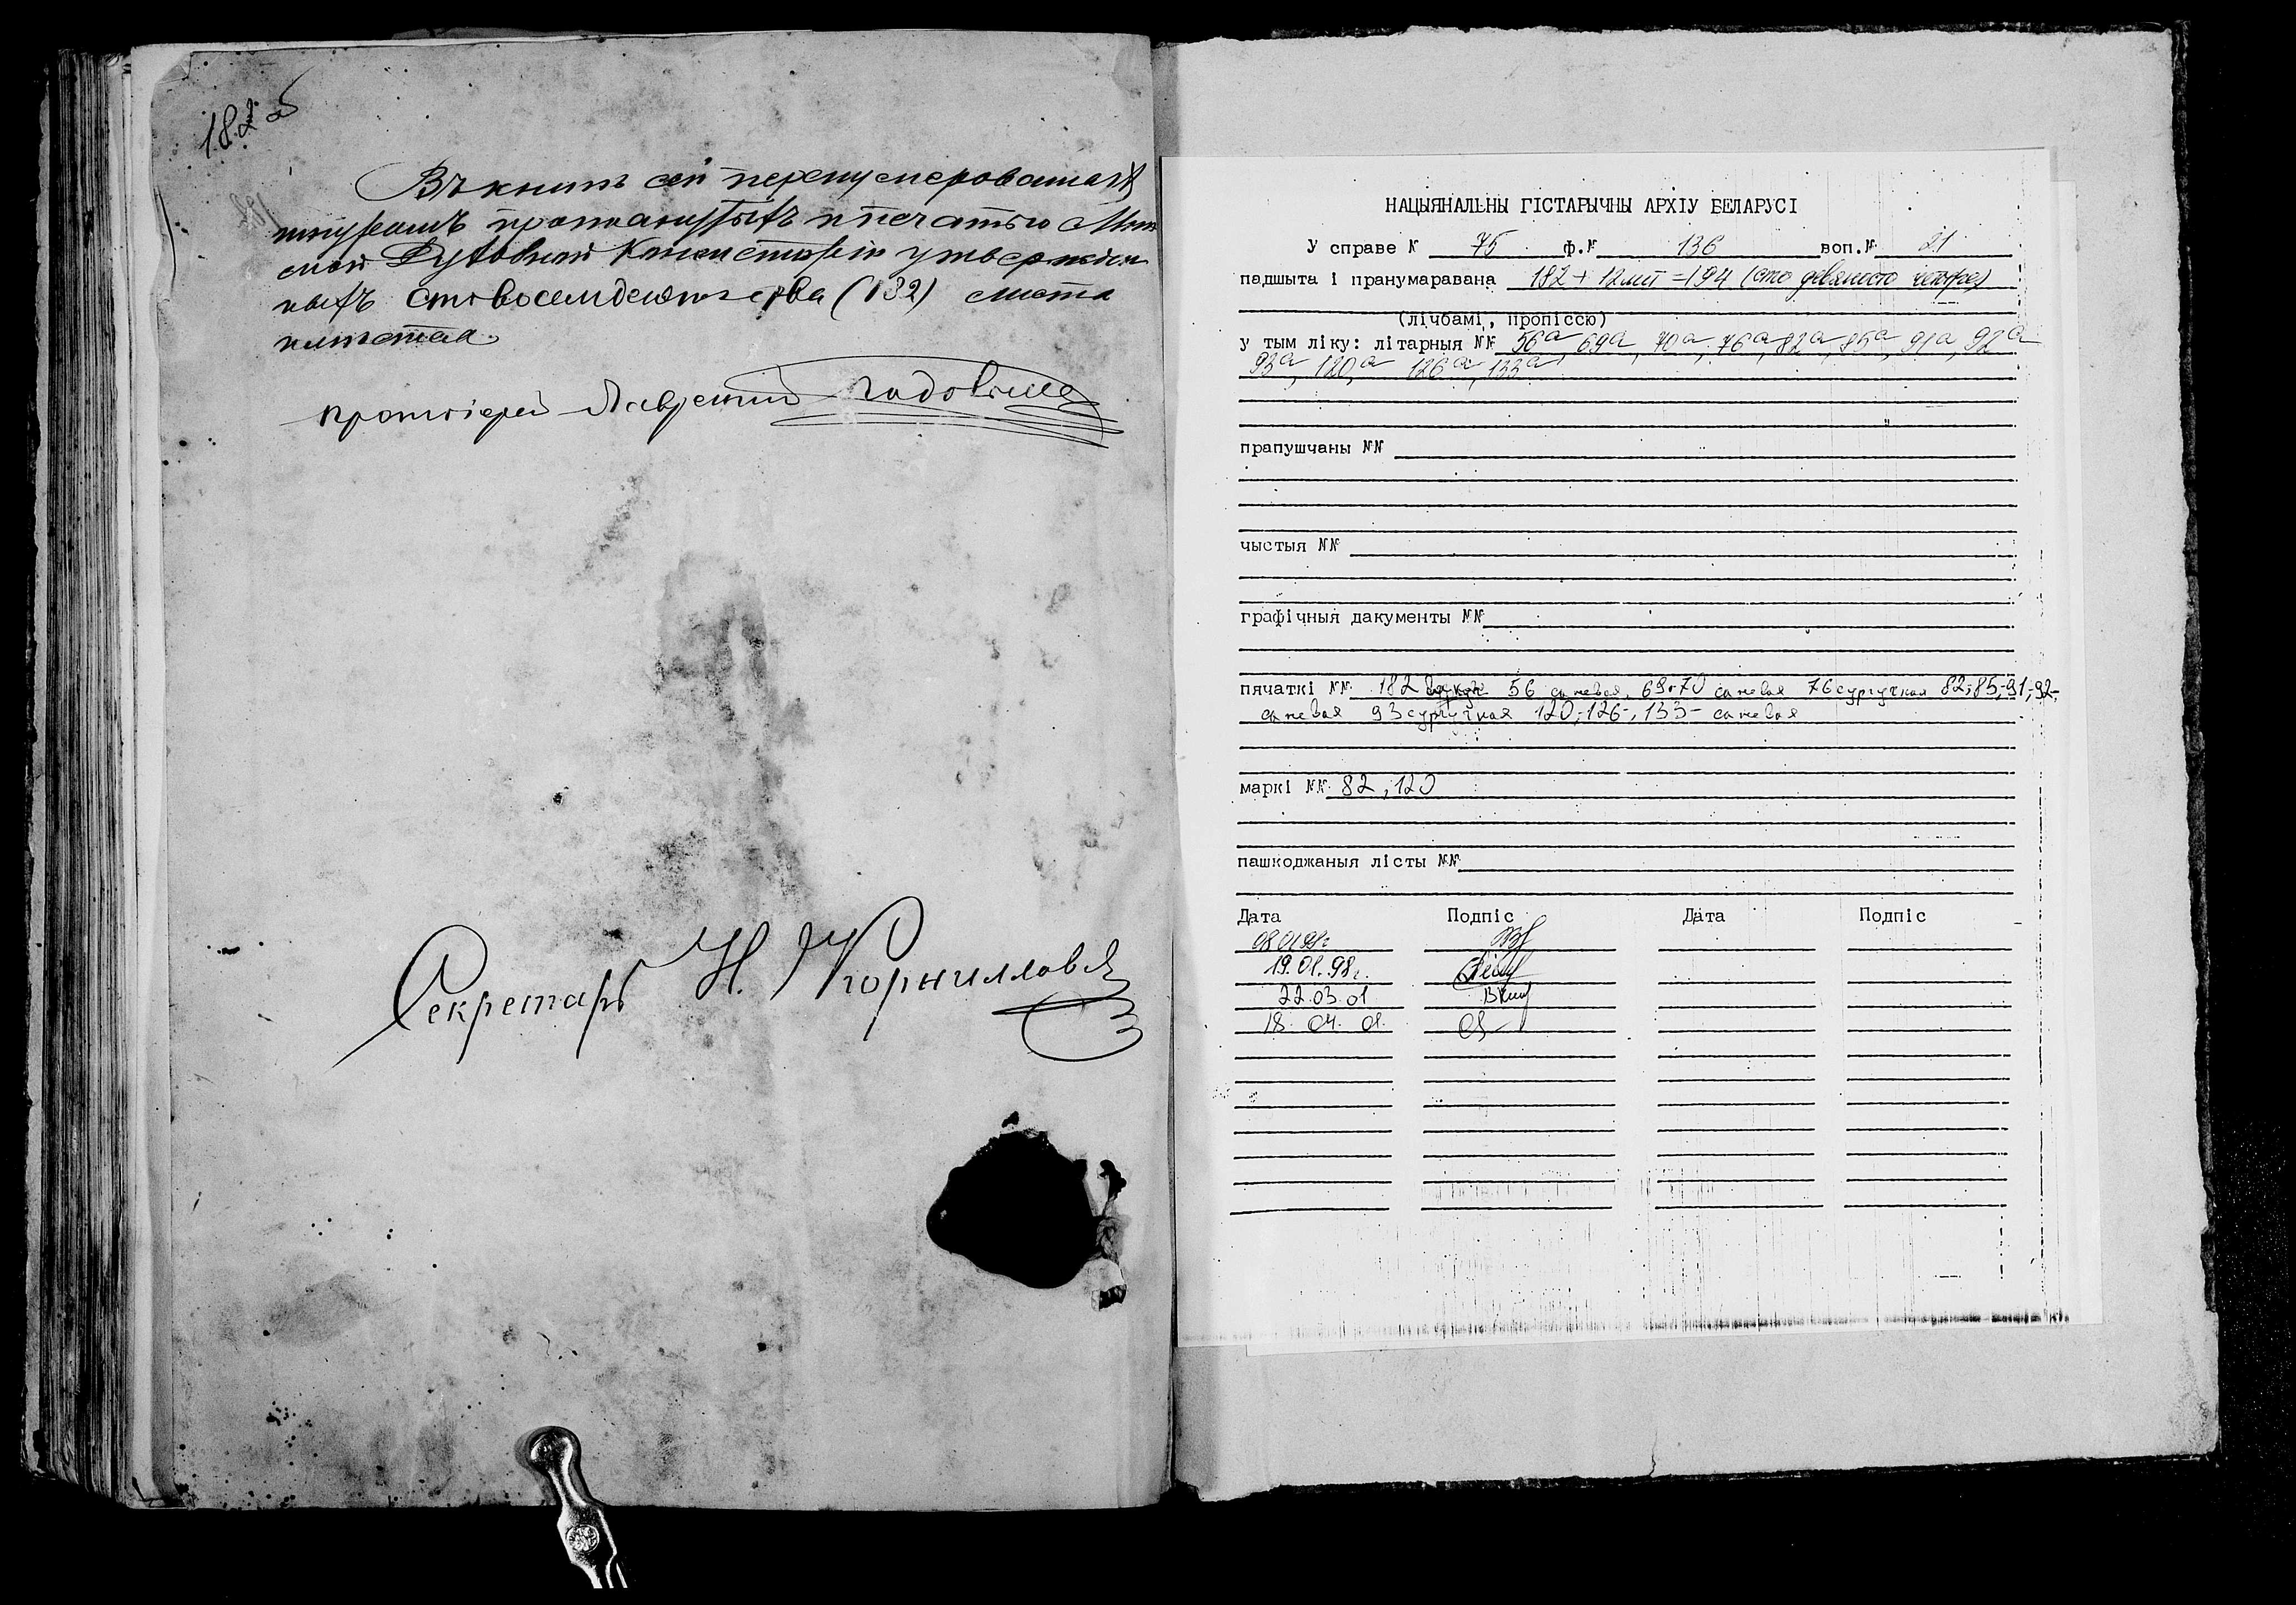 182 об
Въ книгѣ сей перенумерованныхъ
шнуромъ протянутыхъ и печатью Мин
ской Духовной Консисторіи утвержден
ныхъ сто восемьдесятъ два (182) листа
протоіерей Лаврентій
Секретарь Н. Корнилловъ
НАЦЫЯНАЛЬНЫ ГІСТАРЫЧНЫ АРХІУ БЕЛАРУСІ
У справе № 75 ф.№ 136 воп.№ 21
падшыта і пранумаравана 182 + 12 лит = 194 (сто девяносто четыре)
(лічбамі, пропіссю)
у тым ліку: літарныя №№ 56а, 69а, 70а, 76а, 82а, 85а, 91а, 92а
93а, 120а, 126а, 133а
прапушчаны №№
чыстыя №№
графічныя дакументы №№
пячаткі №№ 182 56 сажевая, 69,70 сажевая 76 сургучная 82-, 85-, 91-, 92-
сажевая 93 сургучная 120-, 126-, 133- сажевая
маркі №№ 82, 120
пашкоджаныя лісты №№
Дата Подпіс Дата Подпіс
08.01.98г
19.01.98г.
22.03.01
18.04.01.